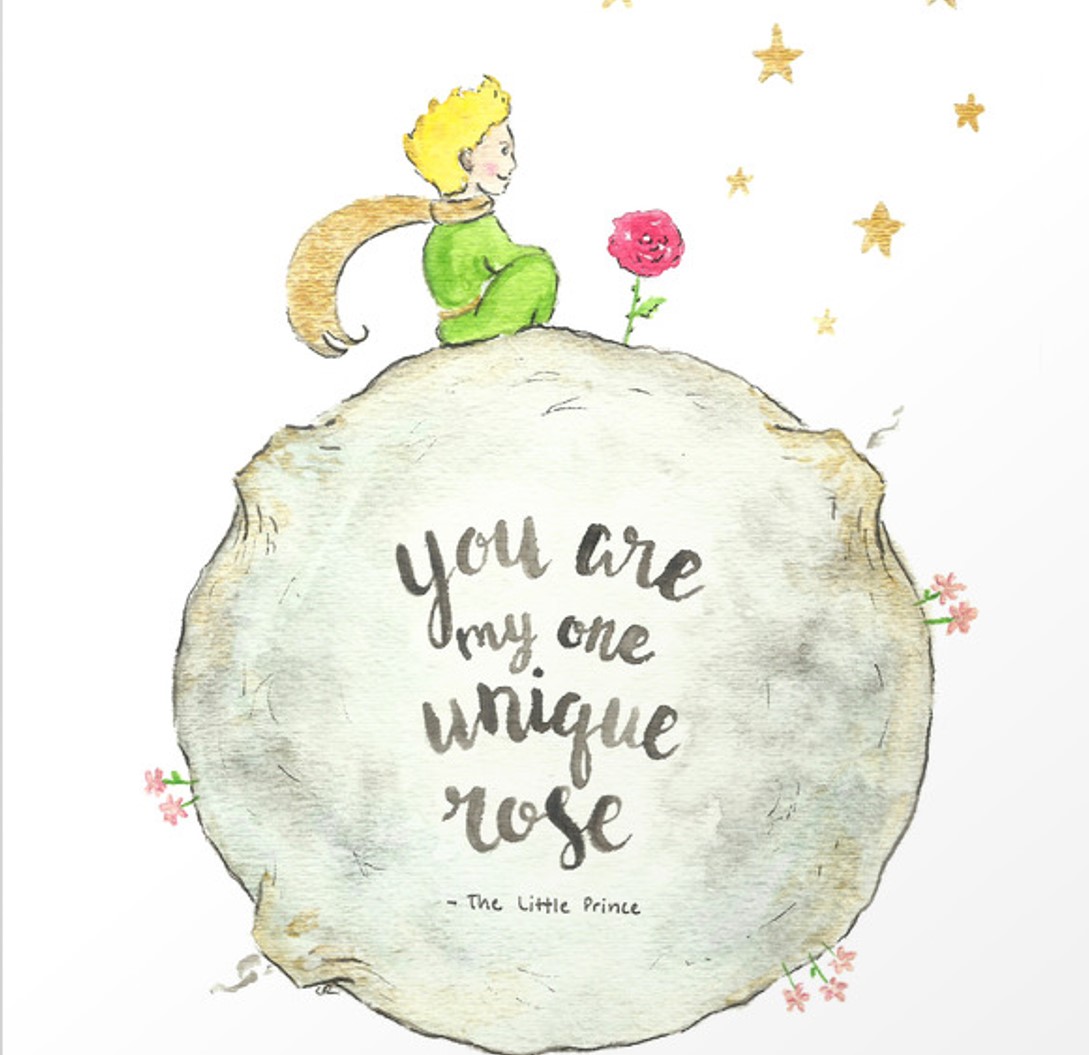 you are
my one
unique
rose
- The Little Prince